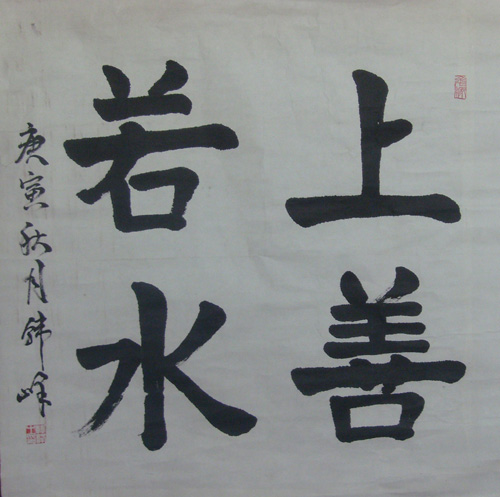 上善
若水
庚寅秋月錦峰